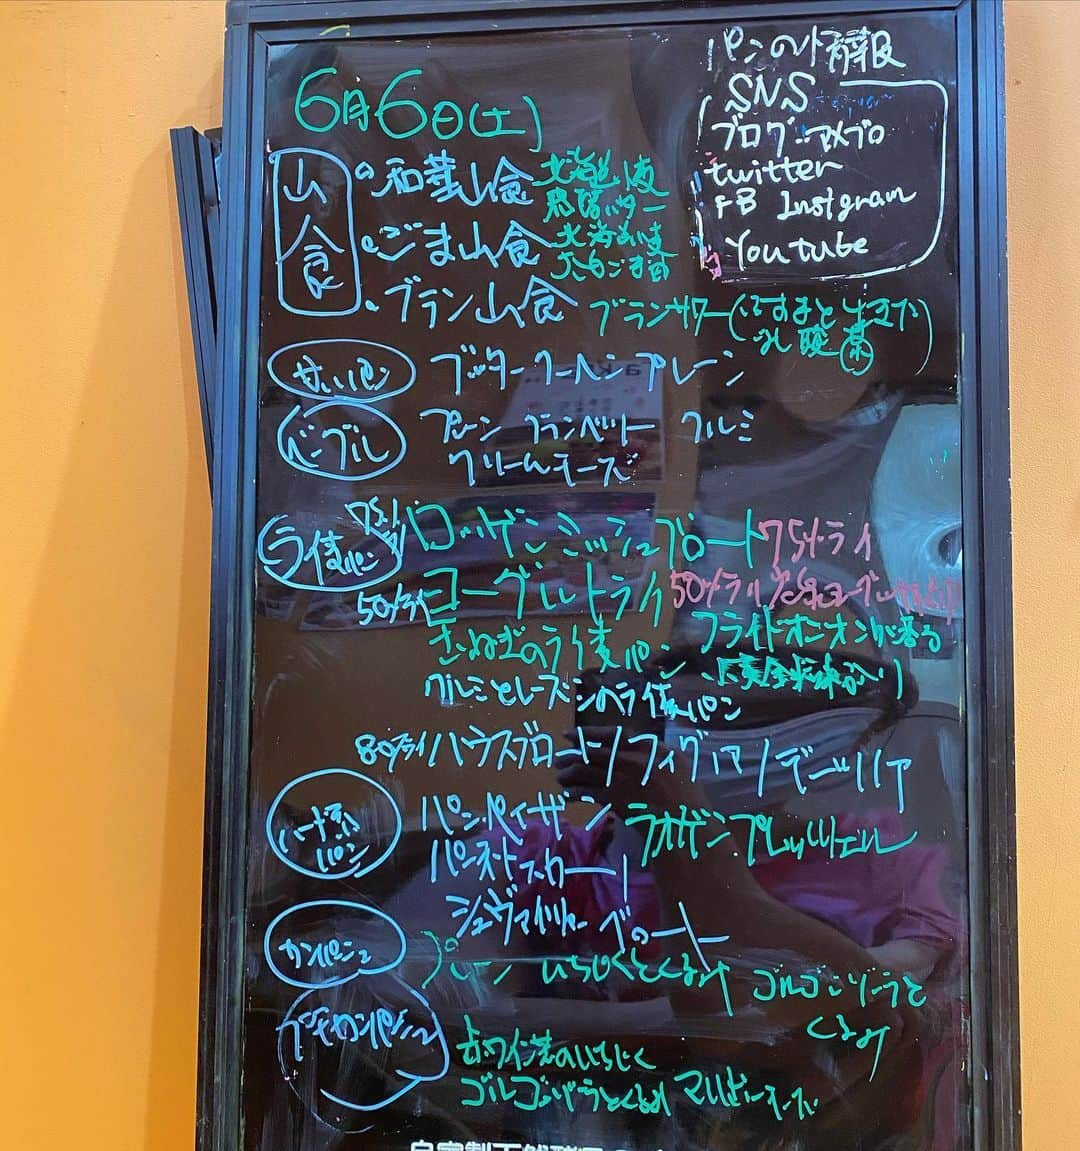 6月6日(土)
パンの情報
SNS
ブログ:アメブロ
twitter
FB Instgram
Youtube
山食
山食 北海道
バター
ごま山食 北海道
ブラン山食 ブランサワー(ふすまとライ麦
乳酸菌)
甘いパン ブッタークーヘン プレーン
ベーグル プレーン クランベリー クルミ
クリームチーズ
ライ麦パン ロッゲンミッシュブロート 75%ライ
50%ライ ヨーグルトライ 50%ライ
たまねぎのライ麦パン フライドオニオンが香る
クルミとレーズンのライ麦パン
80%ライ ハウスブロート/フィグ入り/デーツ入り
ハード系パン パンペイザン ラオゲンプレッツェル
パンストスロー
シュヴァイツァーブロート
カンパーニュ プレーン いちじくとくるみ ゴルゴンゾーラと
くるみ
プチカンパーニュ 赤ワイン煮のいちじく
ゴルゴンゾーラとくるみ